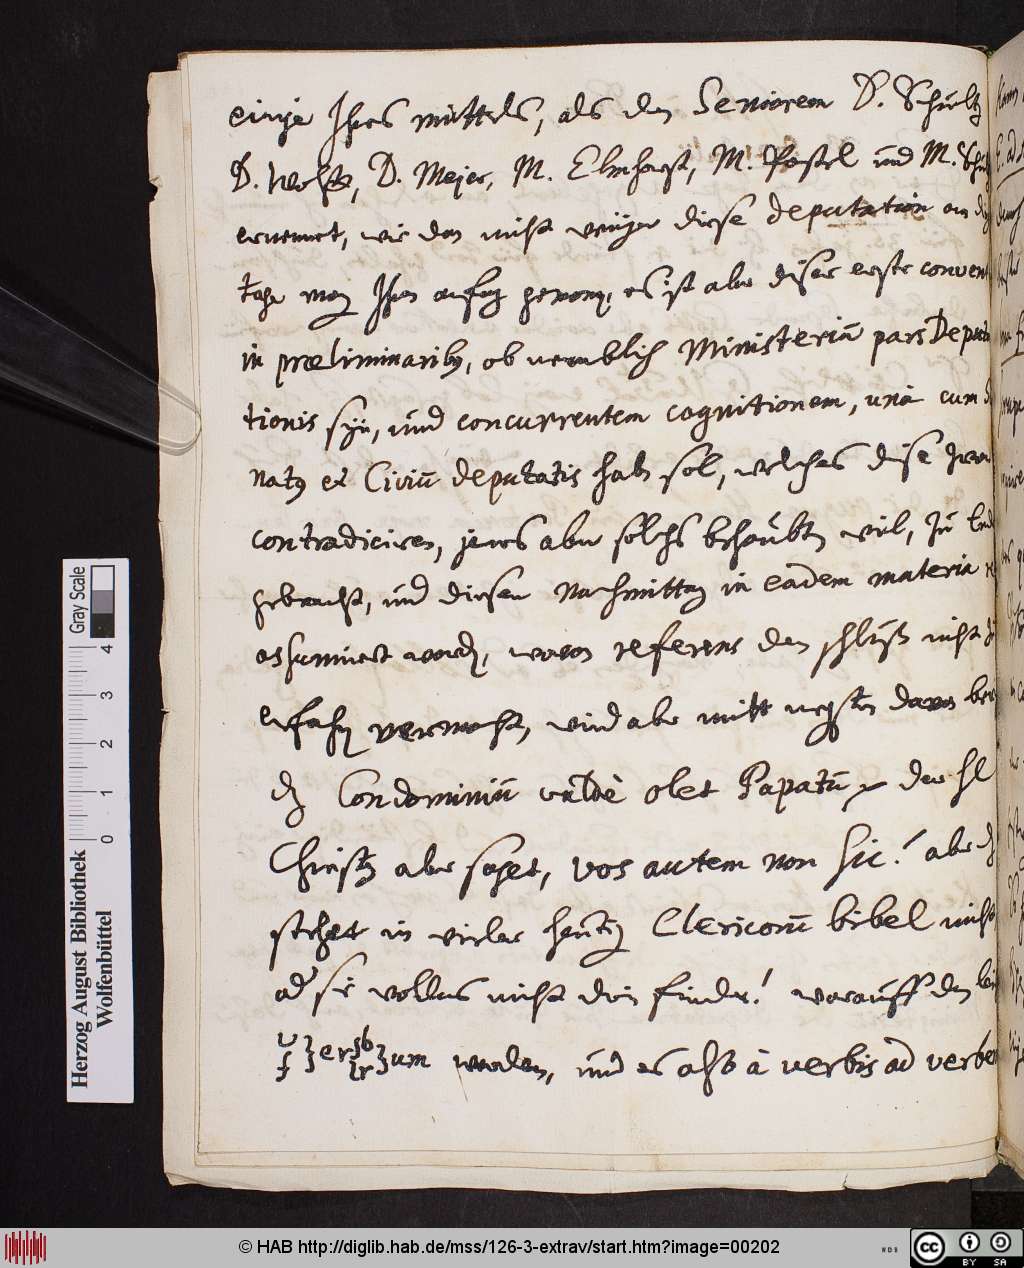 einige Ihres mittels, als den Seniorem D. Schultz
D. Wolff, D. Mejer, M. Elmhorst, M. Postel und M. Schul
ernennet, wie den nicht weniger diese deputation am
man Ihren anfang genom, es ist aber dieser erste convent
in præliminariby, ob nemblich Ministeriū pars Deputa
tionis syn, und concurrentem cognitionem, unà cum
natꝰ et Civiū deputatis habn sol, welches diese zwar
contradiciren, jenes aber solchs behaubtn wil, zu
gebracht, und diesen Nachmittag in eadem materia
assumiert word, wovon referens den schluß nicht
erfahrn vermocht, wird aber mitt negstn davon
dz Condominiū valdè olet Papatū der Hl
Christꝰ aber saget, vos autem non sic! aber dz
stehet in vieler heutign Clericorū bibel nicht
od sie wollens nicht drin finden! worauff den
v } er { b } um worden, und es also à verbis ad verber
f } { r }
Herzog August Bibliothek
Wolfenbüttel
Gray Scale
0 1 2 3 4
© HAB http://diglib.hab.de/mss/126-3-extrav/start.htm?image=00202
cc BY SA